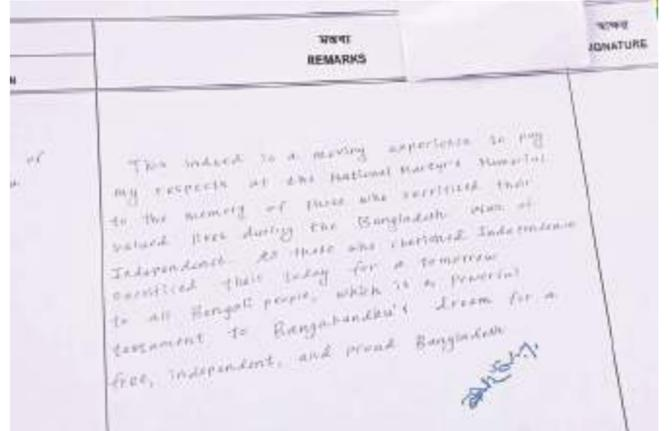 মন্তব্য
REMARKS
SIGNATURE
of
This indeed is a moving experience to pay
my respects at the National Martyr's Memorial
to the memory of those who sacrificed their
valued lives during the Bangladesh War of
Independence. As those who cherished Independence
sacrificed their today for a tomorrow
to all Bengali people, which is a powerful
testament to Bangabandhu's dream for a
free, independent, and proud Bangladesh